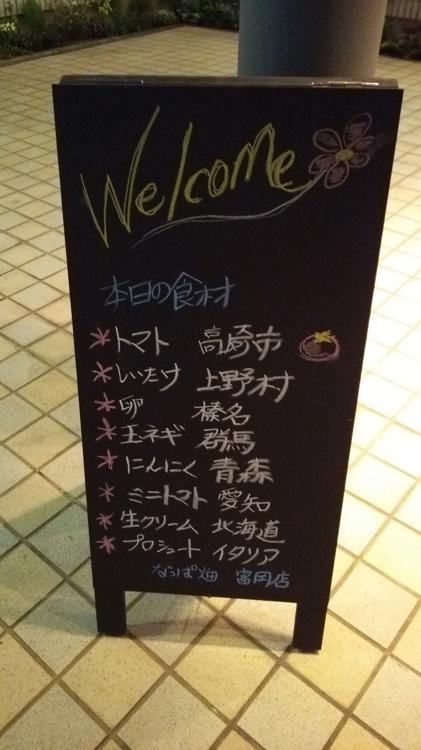 Welcome
本日の食材
* トマト 高崎市
* しいたけ 上野村
* 卵 榛名
* 玉ネギ 群馬
* にんにく 青森
* ミニトマト 愛知
* 生クリーム 北海道
* プロシュート イタリア
なっぱ畑 富岡店